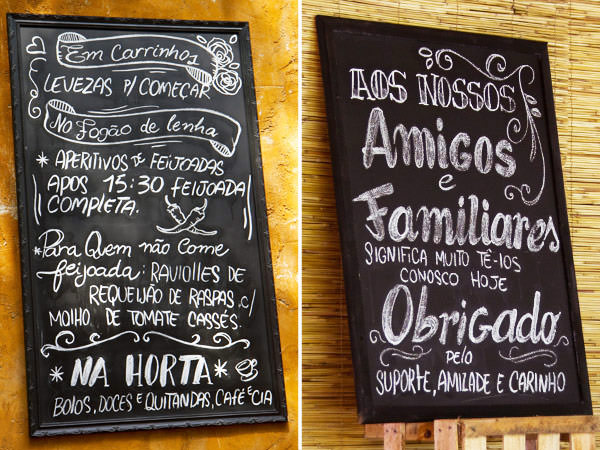 Em Carrinhos
LEVEZAS P/ COMEÇAR
No Fogão de lenha
* APERITIVOS DE FEIJOADAS
APOS 15:30 FEIJOADA
COMPLETA.
* Para Quem não Come
feijoada: RAVIOLLES DE
REQUEIJÃO DE RASPAS C/
MOLHO DE TOMATE CASSÉS.
* NA HORTA *
BOLOS, DOCES E QUITANDAS, CAFÉ E CIA
AOS NOSSOS
Amigos
e
Familiares
SIGNIFICA MUITO TÊ-LOS
CONOSCO HOJE
Obrigado
pelo
SUPORTE, AMIZADE E CARINHO